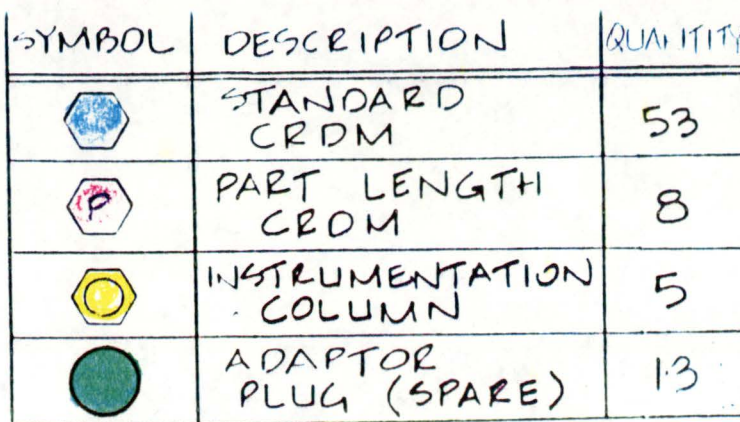 SYMBOL DESCRIPTION QUANTITY
STANDARD
CRDM 53
P PART LENGTH
CRDM 8
INSTRUMENTATION
COLUMN 5
ADAPTOR
PLUG (SPARE) 13